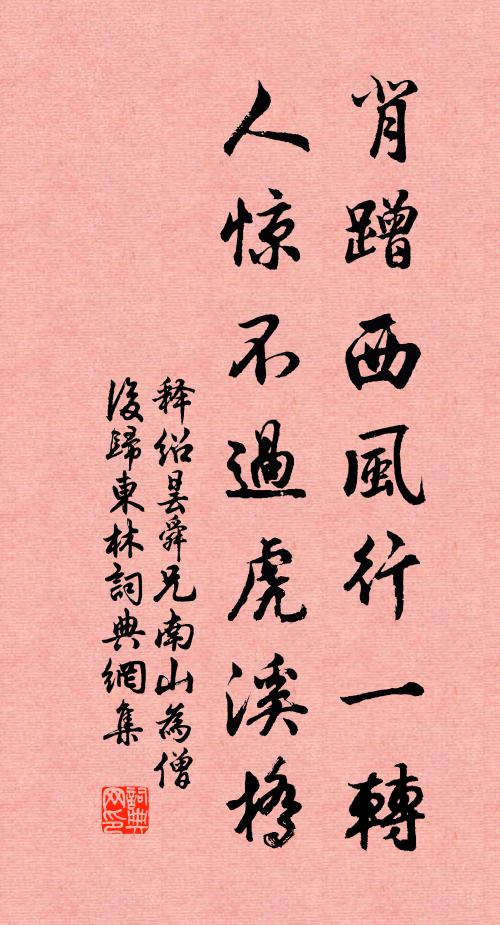 肯蹭西風行一轉
人惊不過虎溪橋
释绍昙舜兄南山為僧
後歸東林詞典網集
詞典网印